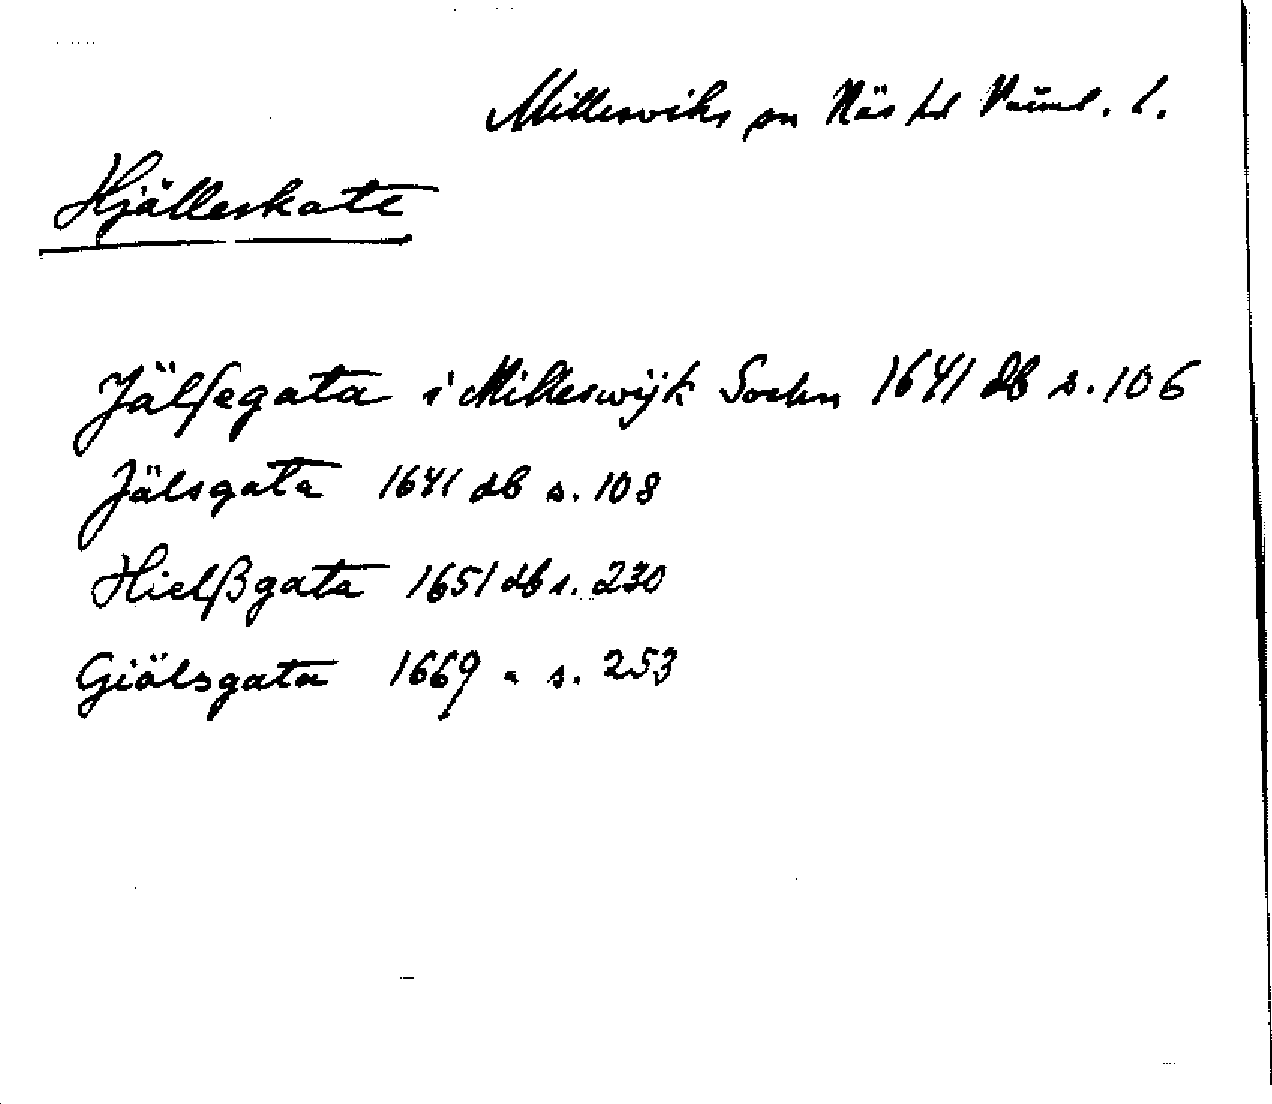 Millesviks sn Näs hd Värml. l.
Hjälleskate
Jälsegata i Milleswijk Sochn 1641 db s. 106
Jälsgata 1641 db s. 108
Hielßgata 1651 db s. 230
Giälsgata 1669 " s. 253